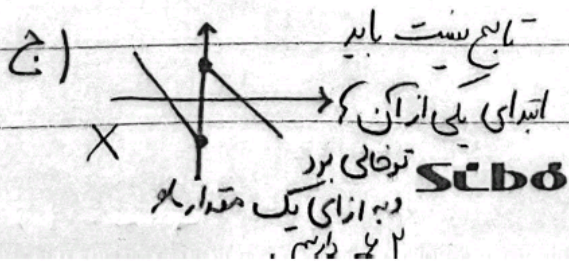 ج)
تابع نیست باید
ابتدای یکی از آن ها
توخالی بود
Sibo
و به ازای یک مقدار x
۲ y داریم.